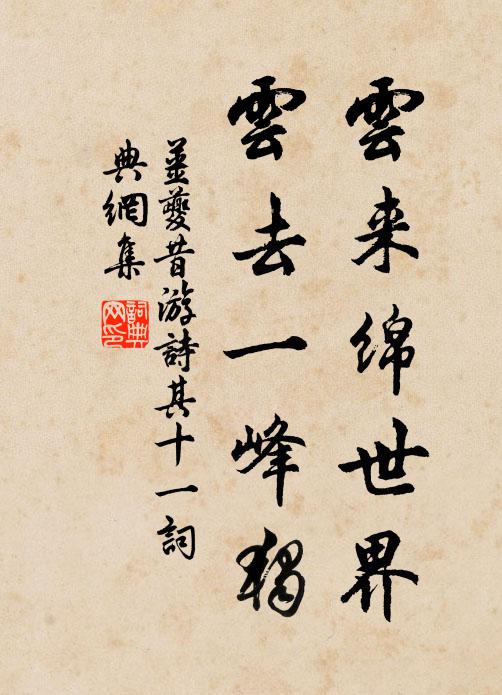 雲来绵世界
雲去一峰獨
姜夔昔游詩其十一詞
典網集
詞典网印